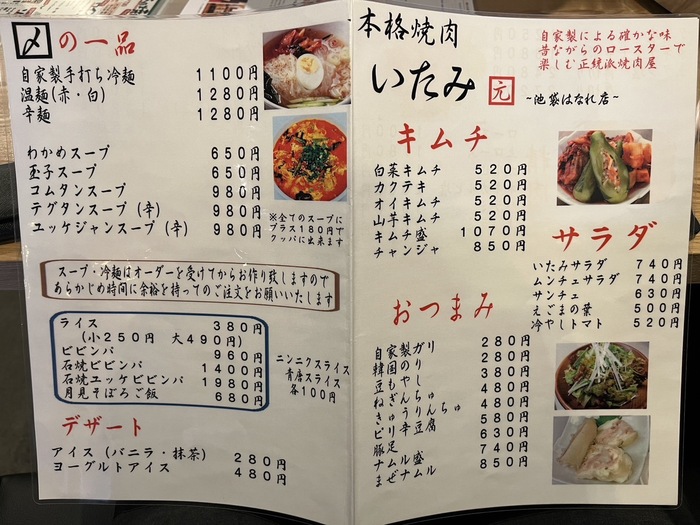 〆の一品
自家製手打ち冷麺 1100円
温麺(赤・白) 1280円
辛麺 1280円
わかめスープ 650円
玉子スープ 650円
コムタンスープ 980円
テグタンスープ(辛) 980円
ユッケジャンスープ(辛) 980円
※全てのスープに
プラス180円で
クッパに出来ます
スープ・冷麺はオーダーを受けてからお作り致しますので
あらかじめ時間に余裕を持ってのご注文をお願いいたします
ライス 380円
(小250円 大490円)
ビビンバ 960円
石焼ビビンバ 1400円
石焼ユッケビビンバ 1980円
月見そぼろご飯 680円
ニンニクスライス
青唐スライス
各100円
デザート
アイス(バニラ・抹茶) 280円
ヨーグルトアイス 480円
本格焼肉
いたみ 元
~池袋はなれ店~
自家製による確かな味
昔ながらのロースターで
楽しむ正統派焼肉屋
キムチ
白菜キムチ 520円
カクテキ 520円
オイキムチ 520円
山芋キムチ 520円
キムチ盛 1070円
チャンジャ 850円
サラダ
いたみサラダ 740円
ムンチェサラダ 740円
サンチェ 630円
えごまの葉 500円
冷やしトマト 520円
おつまみ
自家製ガリ 280円
韓国のり 280円
豆もやし 380円
ねぎんちゅ 480円
きゅうりんちゅ 480円
ピリ辛豆腐 580円
豚足 630円
ナムル盛 740円
まぜナムル 850円